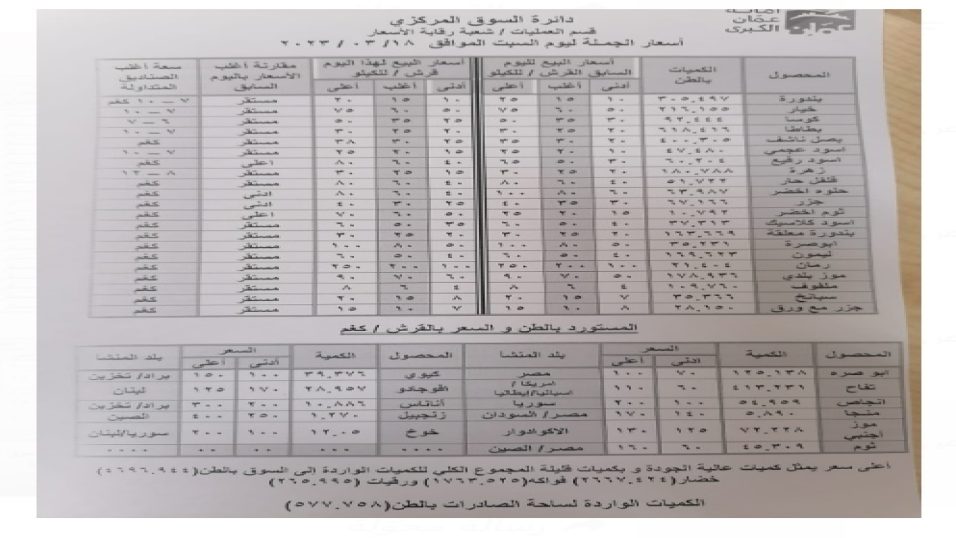 أمانة
عمان
الكبرى
دائرة السوق المركزي
قسم العمليات / شعبة رقابة الأسعار
أسعار الجملة ليوم السبت الموافق ١٨/ ٠٣ / ٢٠٢٣
المحصول الكميات بالطن أسعار البيع لليوم السابق القرش / للكيلو أسعار البيع لهذا اليوم قرش / للكيلو مقارنة أغلب الأسعار باليوم السابق سعة أغلب الصناديق المتداولة
أدنى أغلب أعلى أدنى أغلب أعلى
بندورة ٣٠٥.٤٩٧ ١٠ ١٥ ٢٥ ١٠ ١٥ ٢٠ مستقر ٧ – ١٠ كغم
خيار ٢١٦.١٥٥ ٥٠ ٦٠ ٧٥ ٥٠ ٦٠ ٧٥ مستقر ٧ – ١٠
كوسا ٩٢.٤٤٤ ٣٠ ٣٥ ٥٠ ٢٥ ٣٥ ٥٠ مستقر ٦ – ٧
بطاطا ٦١٨.٤١٦ ٢٠ ٢٥ ٣٠ ٢٠ ٢٥ ٣٠ مستقر ٧ – ١٠
بصل ناشف ٤٠٠.٣٠٥ ٢٥ ٣٠ ٣٨ مستقر كغم
اسود عجمي ٤٧.٤٨٠ ١٠ ٢٠ ٢٥ ١٥ ٢٠ ٢٥ مستقر ٧ – ١٠
اسود رفيع ٦٠.٢٠٤ ٣٠ ٥٠ ٦٥ ٤٠ ٦٠ ٨٠ أعلى كغم
زهرة ١٨٠.٧٨٨ ٢٠ ٢٥ ٣٠ ١٥ ٢٥ ٣٠ مستقر ٨ – ١٢
فلفل حار ٥١.٧٢٢ ٤٠ ٦٠ ٨٠ ٤٠ ٦٠ ٨٠ مستقر كغم
حلوه اخضر ٦٣.٩٨٧ ٦٠ ٨٠ ١٠٠ ٤٠ ٦٠ ٨٠ أدنى كغم
جزر ٦٧.١٦٦ ٣٠ ٣٥ ٤٠ ٢٥ ٣٠ ٤٠ أدنى كغم
ثوم اخضر ١٠.٧٩٢ ١٥ ٢٠ ٢٥ ٥٠ ٦٠ ٧٠ أعلى كغم
اسود كلاسيك ٣٧.٣١٣ ٤٠ ٥٠ ٦٠ ٣٥ ٥٠ ٦٠ مستقر كغم
بندورة معلقة ١٦٣.٦٦٩ ٢٠ ٢٥ ٣٠ ٢٠ ٢٥ ٣٠ مستقر كغم
ابوصرة ٣٥.٢٣١ ٥٠ ٨٠ ١٠٠ ٥٠ ٨٠ ١٠٠ مستقر كغم
ليمون ١٦٩.٦٢٣ ٤٠ ٥٠ ٦٠ ٤٠ ٥٠ ٦٠ مستقر كغم
رمان ٢١.٤٠٤ ١٠٠ ٢٠٠ ٢٥٠ ١٠٠ ٢٠٠ ٢٥٠ مستقر كغم
موز بلدي ١٧٨.٩٣٦ ٥٠ ٧٠ ٩٠ ٦٠ ٧٠ ٩٠ مستقر كغم
ملفوف ١٠٩.٧٦٠ ٤ ٦ ٨ ٤ ٦ ٨ مستقر كغم
سبانخ ٣٥.٣٦٦ ٧ ١٥ ٢٠ ٨ ١٥ ٢٠ مستقر كغم
جزر مع ورق ٢٨.١٥٠ ٨ ١٠ ١٥ ٧ ١٠ ١٥ مستقر كغم
المستورد بالطن و السعر بالقرش / كغم
المحصول الكمية السعر بلد المنشأ المحصول الكمية السعر بلد المنشأ
أدنى أعلى أدنى أعلى
ابو صره ١٢٥.١٣٨ ٧٠ ١٠٠ مصر كيوي ٣٩.٣٧٦ ١٠٠ ١٥٠ براد/ تخزين
تفاح ٤١٣.٢٣١ ٦٠ ١١٠ امريكا / اسبانيا/إيطاليا افوجادو ٢٨.٩٥٧ ١٧٠ ١٢٥ لبنان
انجاص ٥٤.٩٥٩ ١٠٠ ٢٠٠ سوريا أناناس ١٠.٨٨٦ ٢٠٠ ٣٠٠ براد/ تخزين
منجا ٥.٨٩٠ ١٤٠ ١٧٠ مصر/ السودان زنجبيل ١.٢٧٠ ٢٥٠ ٤٠٠ الصين
موز أجنبي ٧٢.٢٢٨ ١٢٥ ١٣٠ الاكوادوار خوخ ١٢.٠٥ ١٠٠ ٢٠٠ سوريا/لبنان
ثوم ٤٥.٣٠٩ ٦٠ ١٦٠ مصر/ الصين ٠٠٠٠ ٠٠٠٠ ٠٠ ٠٠ ٠٠٠٠
أعلى سعر يمثل كميات عالية الجودة و بكميات قليلة المجموع الكلي للكميات الواردة إلى السوق بالطن(٤٦٩٦.٩٤٤)
خضار(٢٦٦٧.٤٢٤) فواكه(١٧٦٣.٥٢٥) ورقيات (٢٦٥.٩٩٥)
الكميات الواردة لساحة الصادرات بالطن(٥٧٧.٧٥٨)